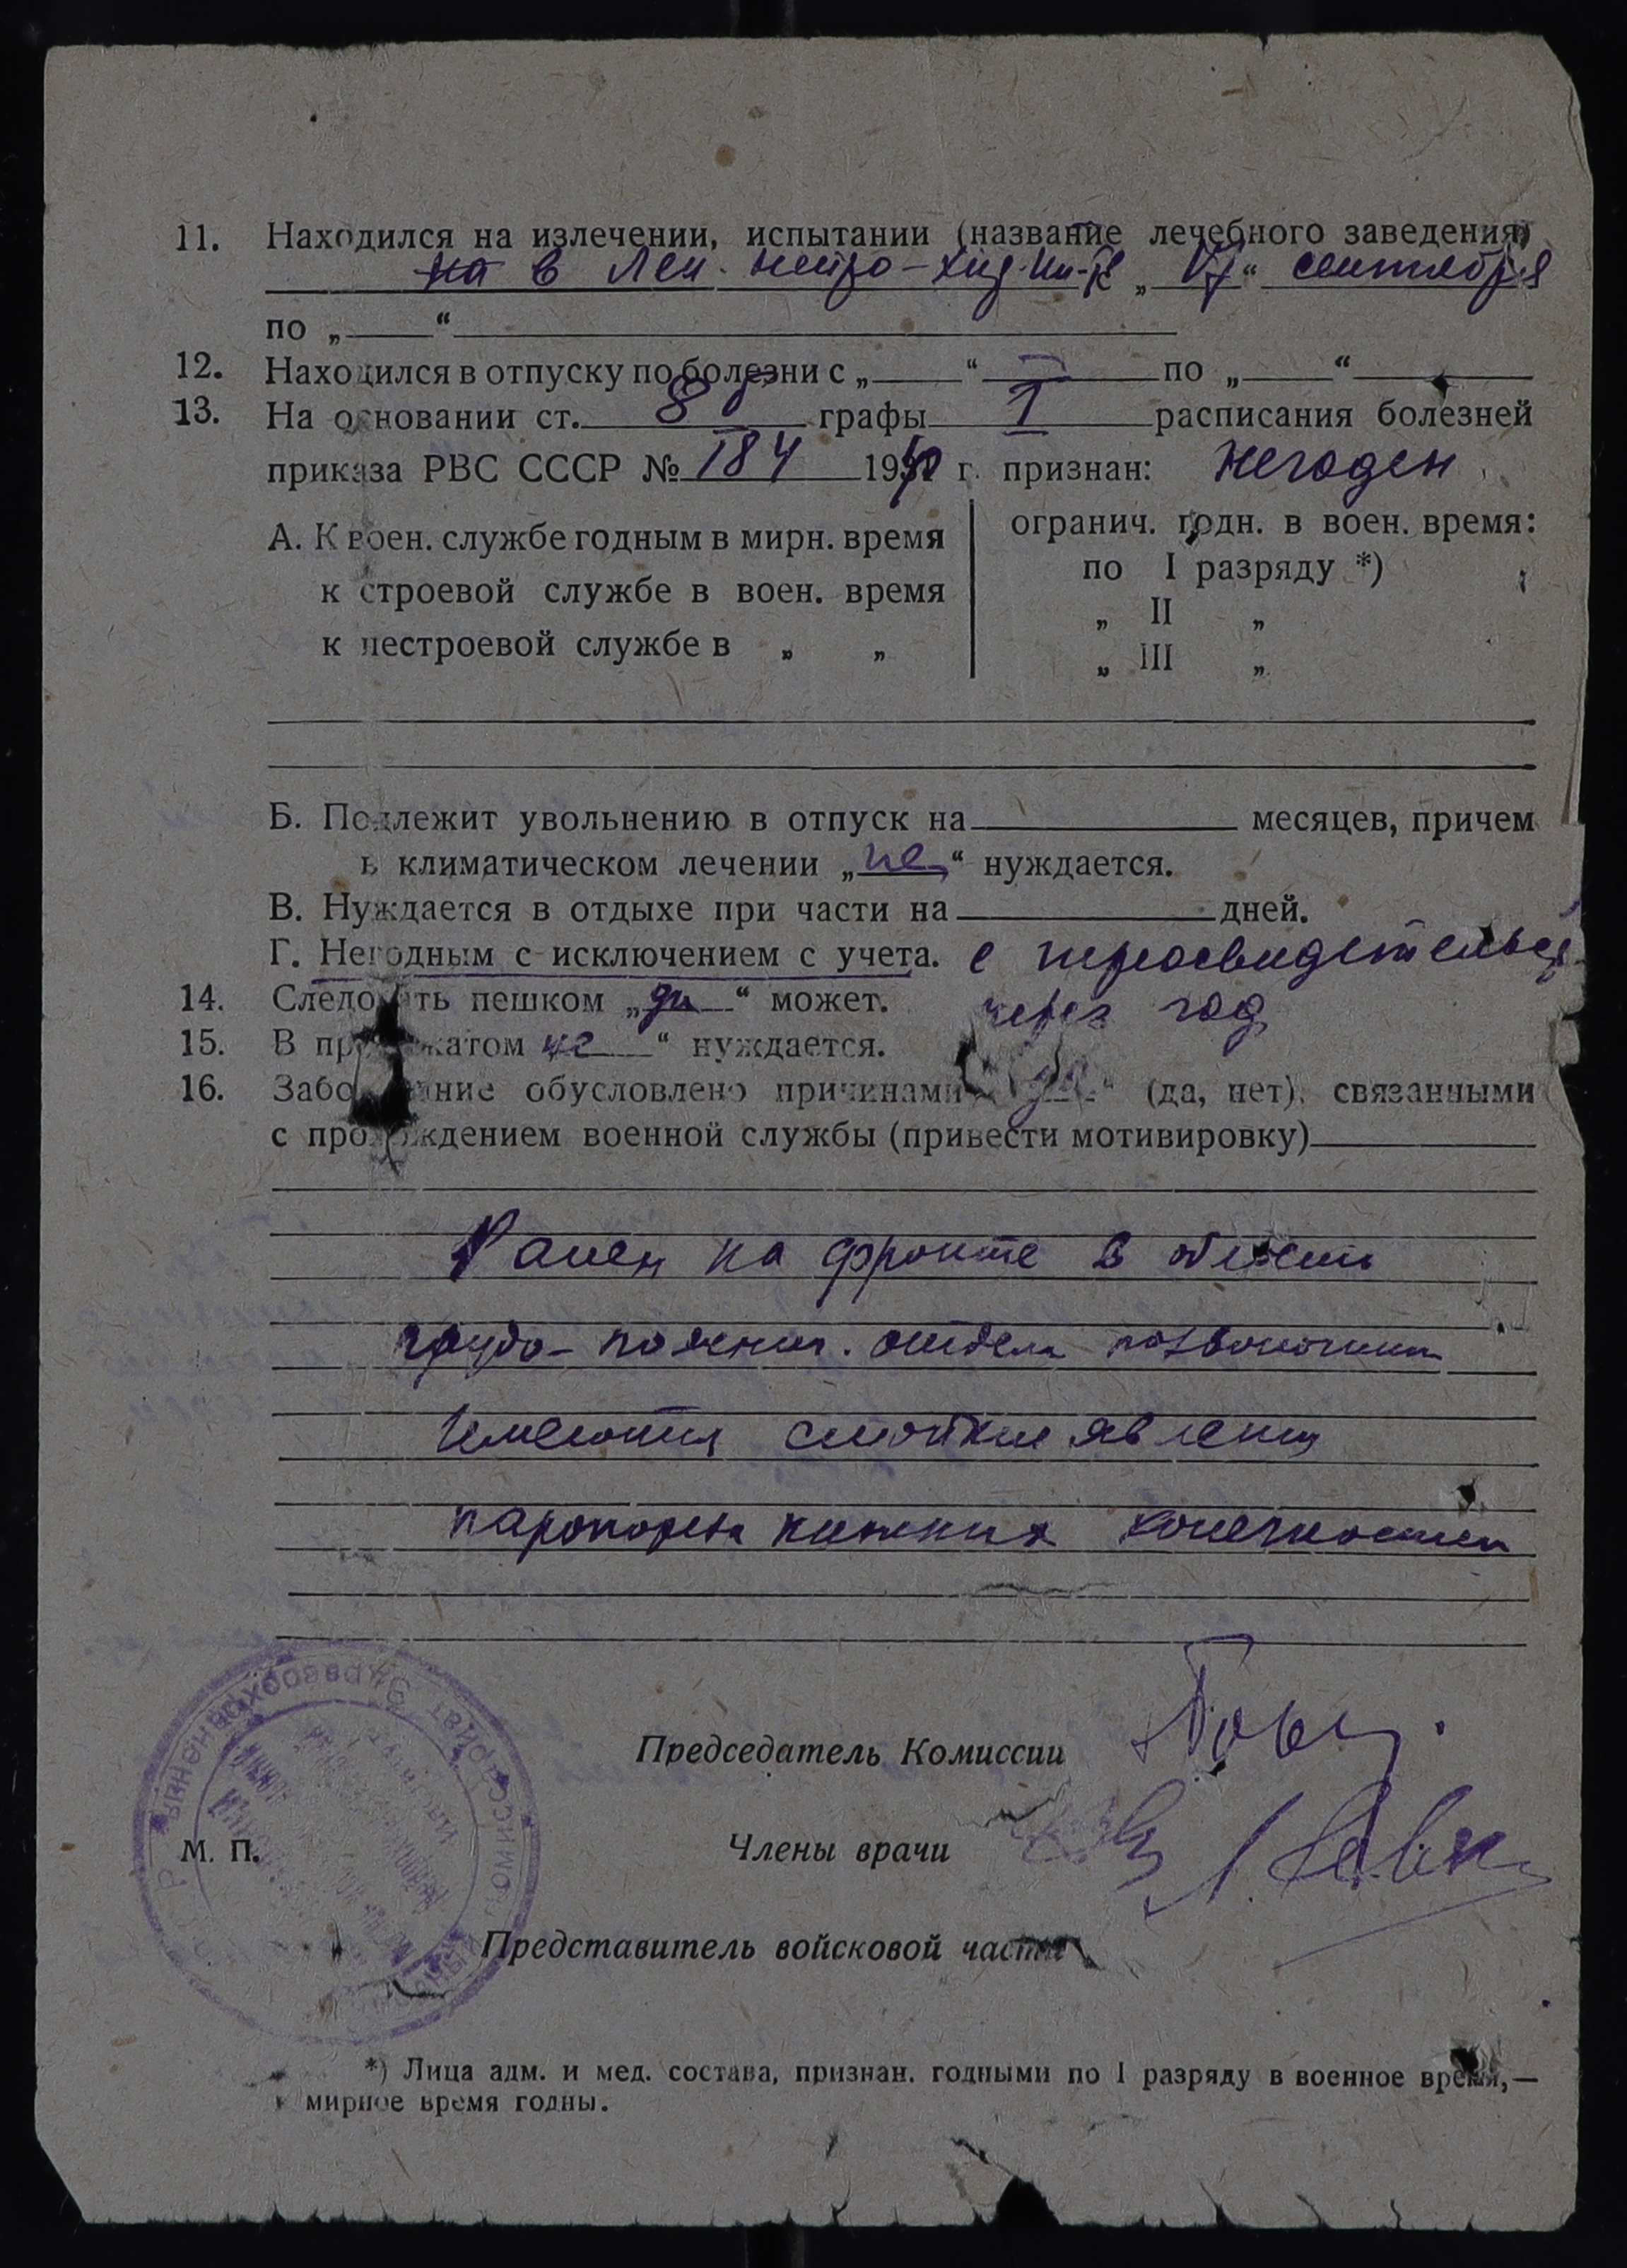 11. Находился на излечении, испытании (название лечебного заведения)
на в Лен. нейро-хир. ин-те „ “ сентября
по „ “
12. Находился в отпуску по болезни с „ “ по „ “
13. На основании ст. 8 б графы I расписания болезней
приказа РВС СССР № 184 1940 г. признан: Негоден
А. К воен. службе годным в мирн. время
к строевой службе в воен. время
к нестроевой службе в „ „
огранич. годн. в воен. время:
по I разряду *)
„ II „
„ III „
Б. Подлежит увольнению в отпуск на месяцев, причем
в климатическом лечении „не“ нуждается.
В. Нуждается в отдыхе при части на дней.
Г. Негодным с исключением с учета. с переосвидетельств
14. Следовать пешком „да“ может. через год
15. В провожатом не “ нуждается.
16. Заболевание обусловлено причинами „да“ (да, нет), связанными
с прохождением военной службы (привести мотивировку)
Ранен на фронте в область
грудо-пояснич. отдела позвоночника
Имеются стойкие явления
парапореза нижних конечностей
Председатель Комиссии
Члены врачи
М. П.
Представитель войсковой части
*) Лица адм. и мед. состава, признан. годными по I разряду в военное время,—
в мирное время годны.